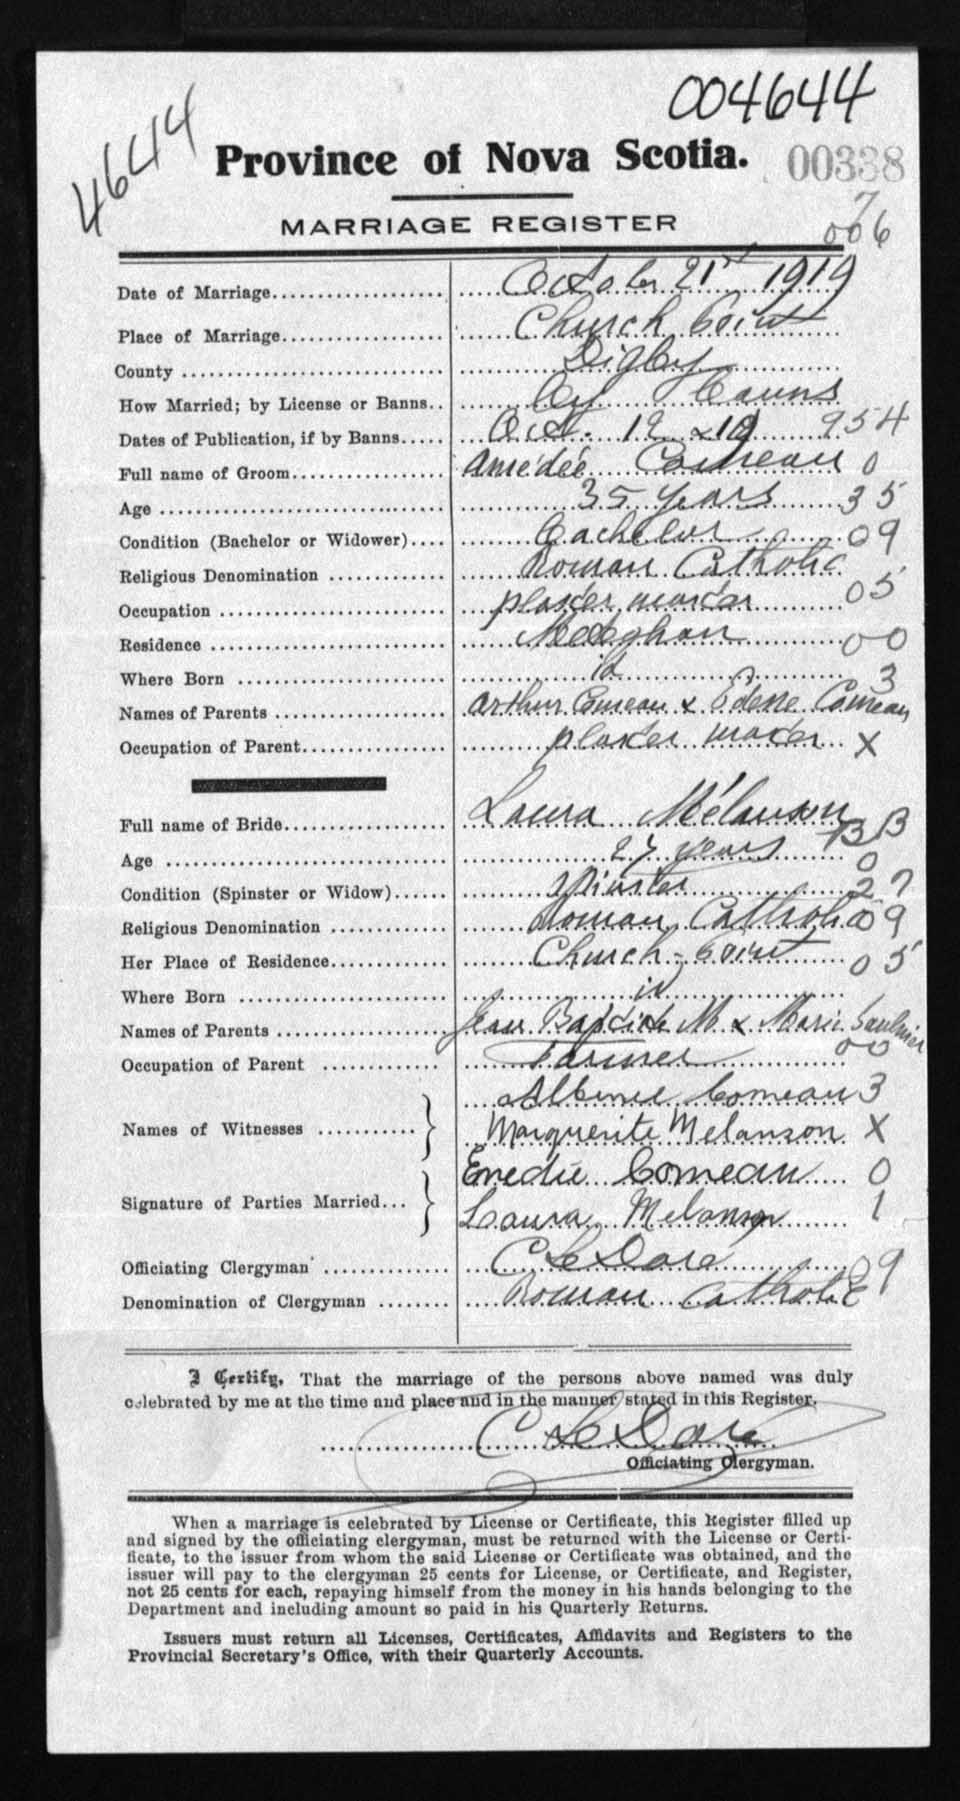 004644
4644
Province of Nova Scotia.
00338
7
006
MARRIAGE REGISTER
Date of Marriage October 21st 1919
Place of Marriage Church Point
County Digby
How Married; by License or Banns.. by banns
Dates of Publication, if by Banns Oct. 12 & 19 954
Full name of Groom Amédée Comeau 0
Age 35 years 35
Condition (Bachelor or Widower) Bachelor 09
Religious Denomination Roman Catholic
Occupation 05
Residence Meteghan 00
Where Born id 3
Names of Parents Arthur Comeau & Comeau
Occupation of Parent X
Full name of Bride Laura Mélanson
BB
Age 27 years 0
Condition (Spinster or Widow) Spinster 27
Religious Denomination Roman Catholic 09
Her Place of Residence Church-Point 05
Where Born id
Names of Parents Jean Baptiste M. & Marie Saulnier
Occupation of Parent Farmer 00
Comeau 3
Names of Witnesses Marguerite Melanson X
Comeau 0
Signature of Parties Married... Laura Melanson 1
Officiating Clergyman C LeDoré 09
Denomination of Clergyman Roman Catholic
I Certify, That the marriage of the persons above named was duly
celebrated by me at the time and place and in the manner stated in this Register.
C LeDoré
Officiating Clergyman.
When a marriage is celebrated by License or Certificate, this Register filled up
and signed by the officiating clergyman, must be returned with the License or Certi-
ficate, to the issuer from whom the said License or Certificate was obtained, and the
issuer will pay to the clergyman 25 cents for License, or Certificate, and Register,
not 25 cents for each, repaying himself from the money in his hands belonging to the
Department and including amount so paid in his Quarterly Returns.
Issuers must return all Licenses, Certificates, Affidavits and Registers to the
Provincial Secretary's Office, with their Quarterly Accounts.